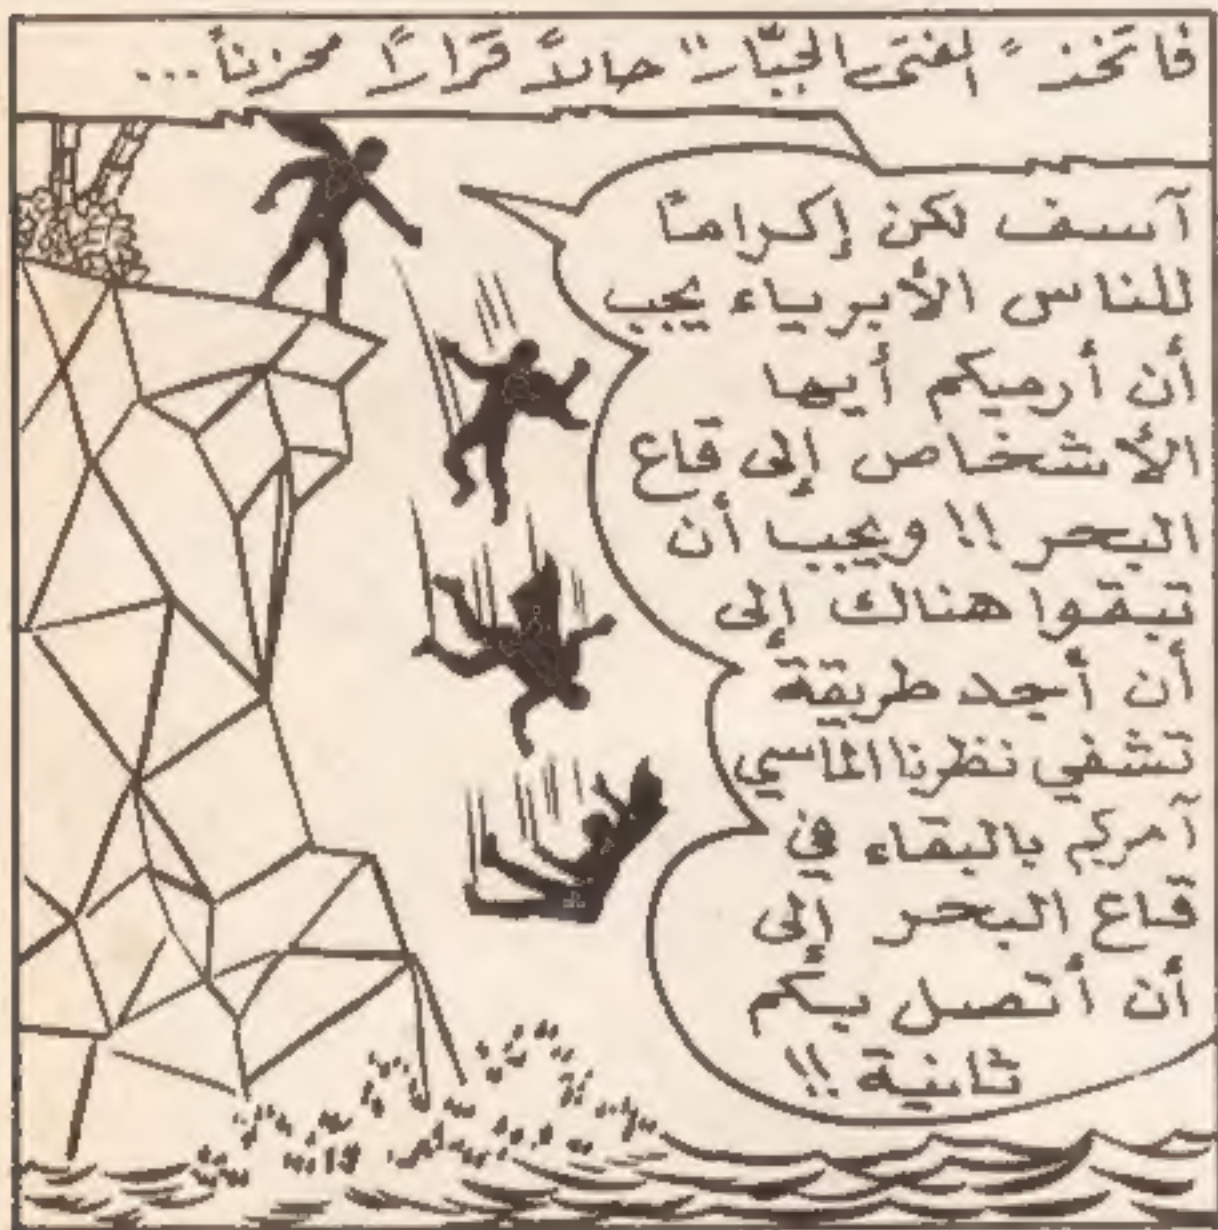 فاتخذ "الفتى الجبّار" حالاً قرارًا محزناً ...
آسف لكن إكرامًا
للناس الأبرياء يجب
أن أرميكم أيها
الأشخاص إلى قاع
البحر !! ويجب أن
تبقوا هناك إلى
أن أجد طريقة
تشفي نظرنا الماسي
آمركم بالبقاء في
قاع البحر إلى
أن أتصل بكم
ثانية !!